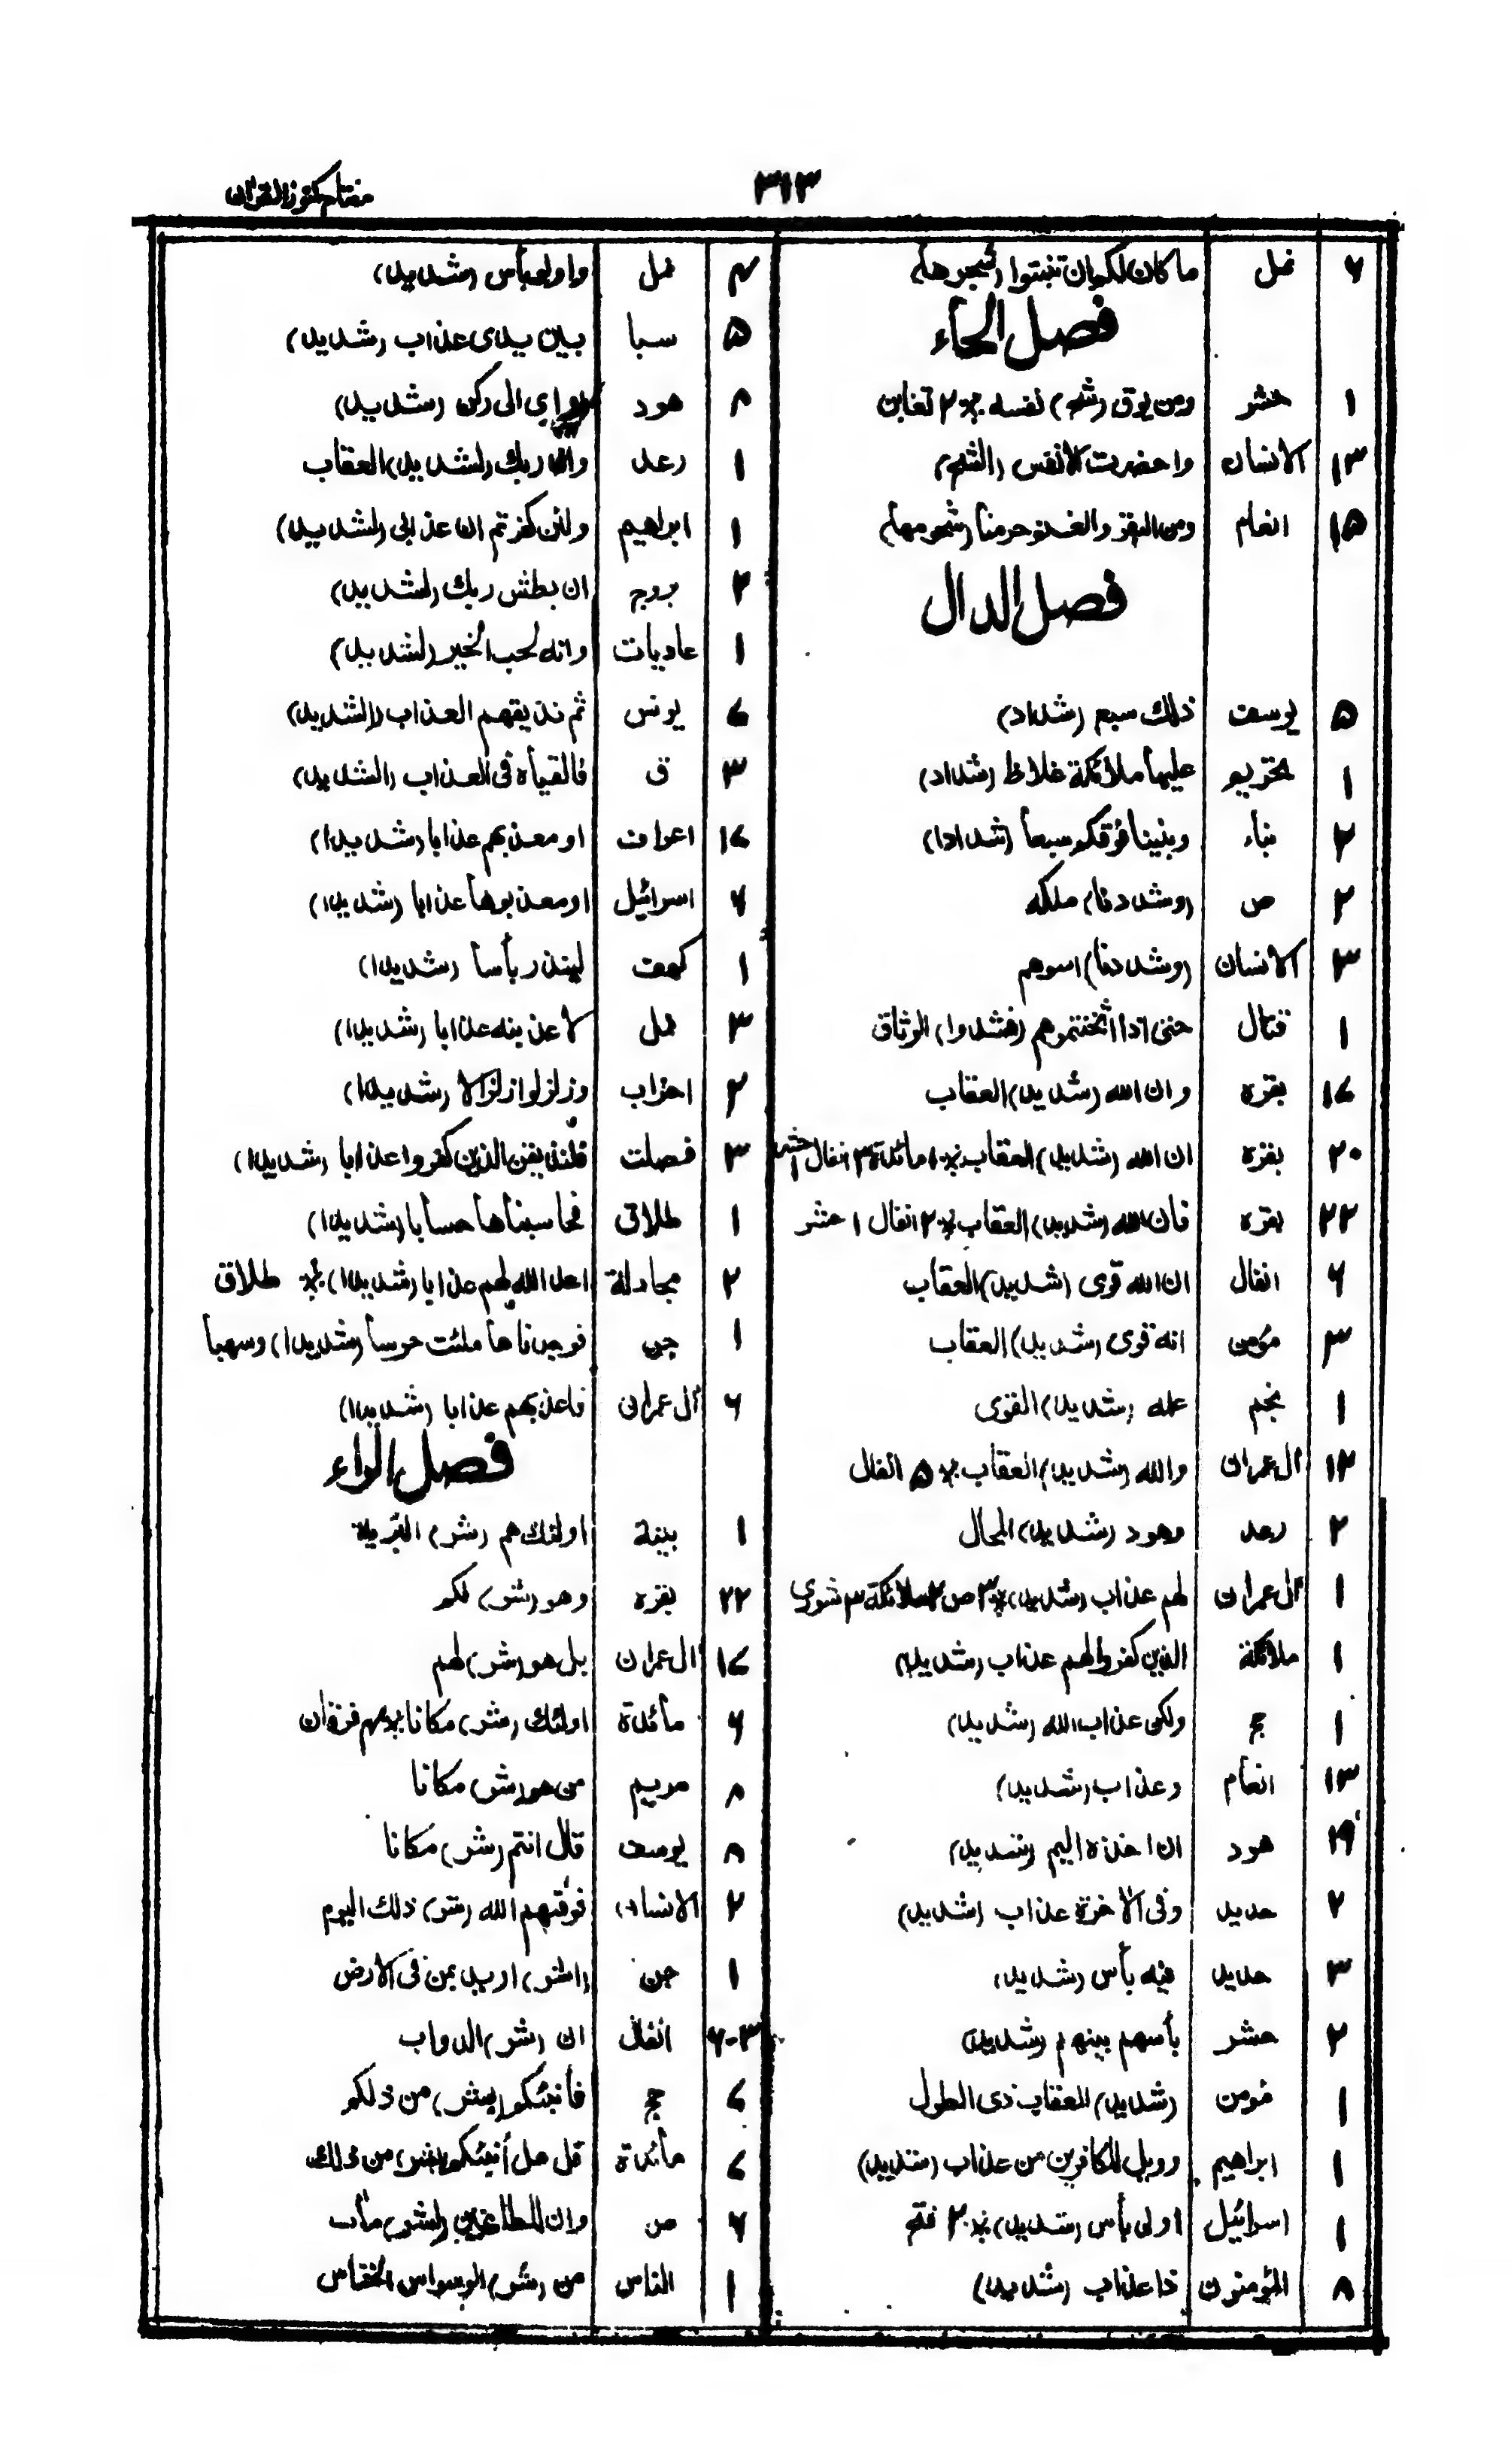 ٣١٣
مفتاح كنوز القرآن
٦ نمل ما كان لكم ان تنبتوا (شجرها)
فصل الحاء
١ حشر ومن يوق (شح) نفسه ٢ تغابن
١٣ الانسان واحضرت الانفس (الشح)
١٥ انعام ومن البقر والغنم حرمنا (شحومها)
فصل الدال
٥ يوسف ذلك سبع (شداد)
١ تحريم عليها ملائكة غلاظ (شداد)
٢ نباء وبنينا فوقكم سبعا (شدادا)
٢ ص (وشددنا) ملكه
٣ الانسان (وشددنا) اسرهم
١ قتال حتى اذا اثخنتموهم (فشدوا) الوثاق
١٦ بقره وان الله (شديد) العقاب
٢٠ بقره ان الله (شديد) العقاب ١ مائدة ٣ انفال ١ حشر
٢٢ بقره فان الله (شديد) العقاب ٢ انفال ١ حشر
٦ انفال ان الله قوى (شديد) العقاب
٣ مؤمن انه قوى (شديد) العقاب
١ نجم علمه (شديد) القوى
١٢ ال عمران والله (شديد) العقاب ٥ انفال
٢ رعد وهو (شديد) المحال
١ ال عمران لهم عذاب (شديد) ٣ ص ٢ ملائكة ٣ شورى
١ ملائكة الذين كفروا لهم عذاب (شديد)
١ حج ولكن عذاب الله (شديد)
١٣ انعام وعذاب (شديد)
١٩ هود ان اخذه اليم (شديد)
٢ حديد وفى الاخرة عذاب (شديد)
٣ حديد فيه بأس (شديد)
٢ حشر بأسهم بينهم (شديد)
١ مؤمن (شديد) العقاب ذى الطول
١ ابراهيم وويل للكافرين من عذاب (شديد)
١ اسرائيل اولى بأس (شديد) ٢ فتح
٨ المؤمنون ذا عذاب (شديد)
٣ نمل واولو بأس (شديد)
٥ سبا بين يدى عذاب (شديد)
٨ هود اواى الى ركن (شديد)
١ رعد وان ربك (لشديد) العقاب
١ ابراهيم ولئن كفرتم ان عذابى (لشديد)
٢ بروج ان بطش ربك (لشديد)
١ عاديات وانه لحب الخير (لشديد)
٦ يونس ثم نذيقهم العذاب (الشديد)
٣ ق فالقياه فى العذاب (الشديد)
١٦ اعراف او معذبهم عذابا (شديدا)
٦ اسرائيل او معذبوها عذابا (شديدا)
١ كهف لينذر بأسا (شديدا)
٣ نمل لاعذبنه عذابا (شديدا)
٢ احزاب وزلزلوا زلزالا (شديدا)
٣ فصلت فلنذيقن الذين كفروا عذابا (شديدا)
١ طلاق فحاسبناها حسابا (شديدا)
٢ مجادلة اعد الله لهم عذابا (شديدا) طلاق
١ جن فوجدناها ملئت حرسا (شديدا) وشهبا
٦ ال عمران فاعذبهم عذابا (شديدا)
فصل الراء
١ بينة اولئك هم (شر) البرية
٢٢ بقره وهو (شر) لكم
١٦ ال عمران بل هو (شر) لهم
٦ مائدة اولئك (شر) مكانا ٣ فرقان
٨ مريم من هو (شر) مكانا
٨ يوسف قال انتم (شر) مكانا
٢ الانسان فوقهم الله (شر) ذلك اليوم
١ جن (اشر) اريد بمن فى الارض
٣-٦ انفال ان (شر) الدواب
٦ حج فأنبئكم (بشر) من ذلكم
٦ مائدة قل هل أنبئكم (بشر) من ذلك
٦ ص وان للطاغين (لشر) مآب
١ الناس من (شر) الوسواس الخناس